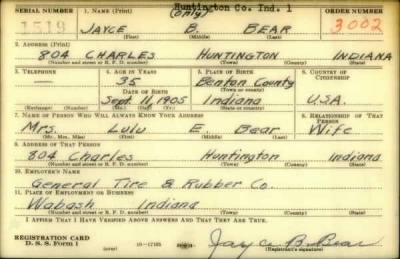 Huntington Co. Ind. 1
SERIAL NUMBER 1. NAME (Print) (only) ORDER NUMBER
1519 JAYCE B. BEAR 3002
(First) (Middle) (Last)
2. ADDRESS (Print)
804 CHARLES HUNTINGTON INDIANA
(Number and street or R. F. D. number) (Town) (County) (State)
3. TELEPHONE 4. AGE IN YEARS 5. PLACE OF BIRTH 6. COUNTRY OF CITIZENSHIP
— 35 Benton County
DATE OF BIRTH (Town or county)
Sept. 11, 1905 Indiana U.S.A.
(Exchange) (Number) (Mo.) (Day) (Yr.) (State or country)
7. NAME OF PERSON WHO WILL ALWAYS KNOW YOUR ADDRESS 8. RELATIONSHIP OF THAT PERSON
Mrs. Lulu E. Bear Wife
(Mr., Mrs., Miss) (First) (Middle) (Last)
9. ADDRESS OF THAT PERSON
804 Charles Huntington Indiana
(Number and street or R. F. D. number) (Town) (County) (State)
10. EMPLOYER'S NAME
General Tire & Rubber Co.
11. PLACE OF EMPLOYMENT OR BUSINESS
Wabash Indiana
(Number and street or R. F. D. number) (Town) (County) (State)
I AFFIRM THAT I HAVE VERIFIED ABOVE ANSWERS AND THAT THEY ARE TRUE.
REGISTRATION CARD
D. S. S. Form 1 16—17105 Jayce B. Bear
(Registrant's signature)